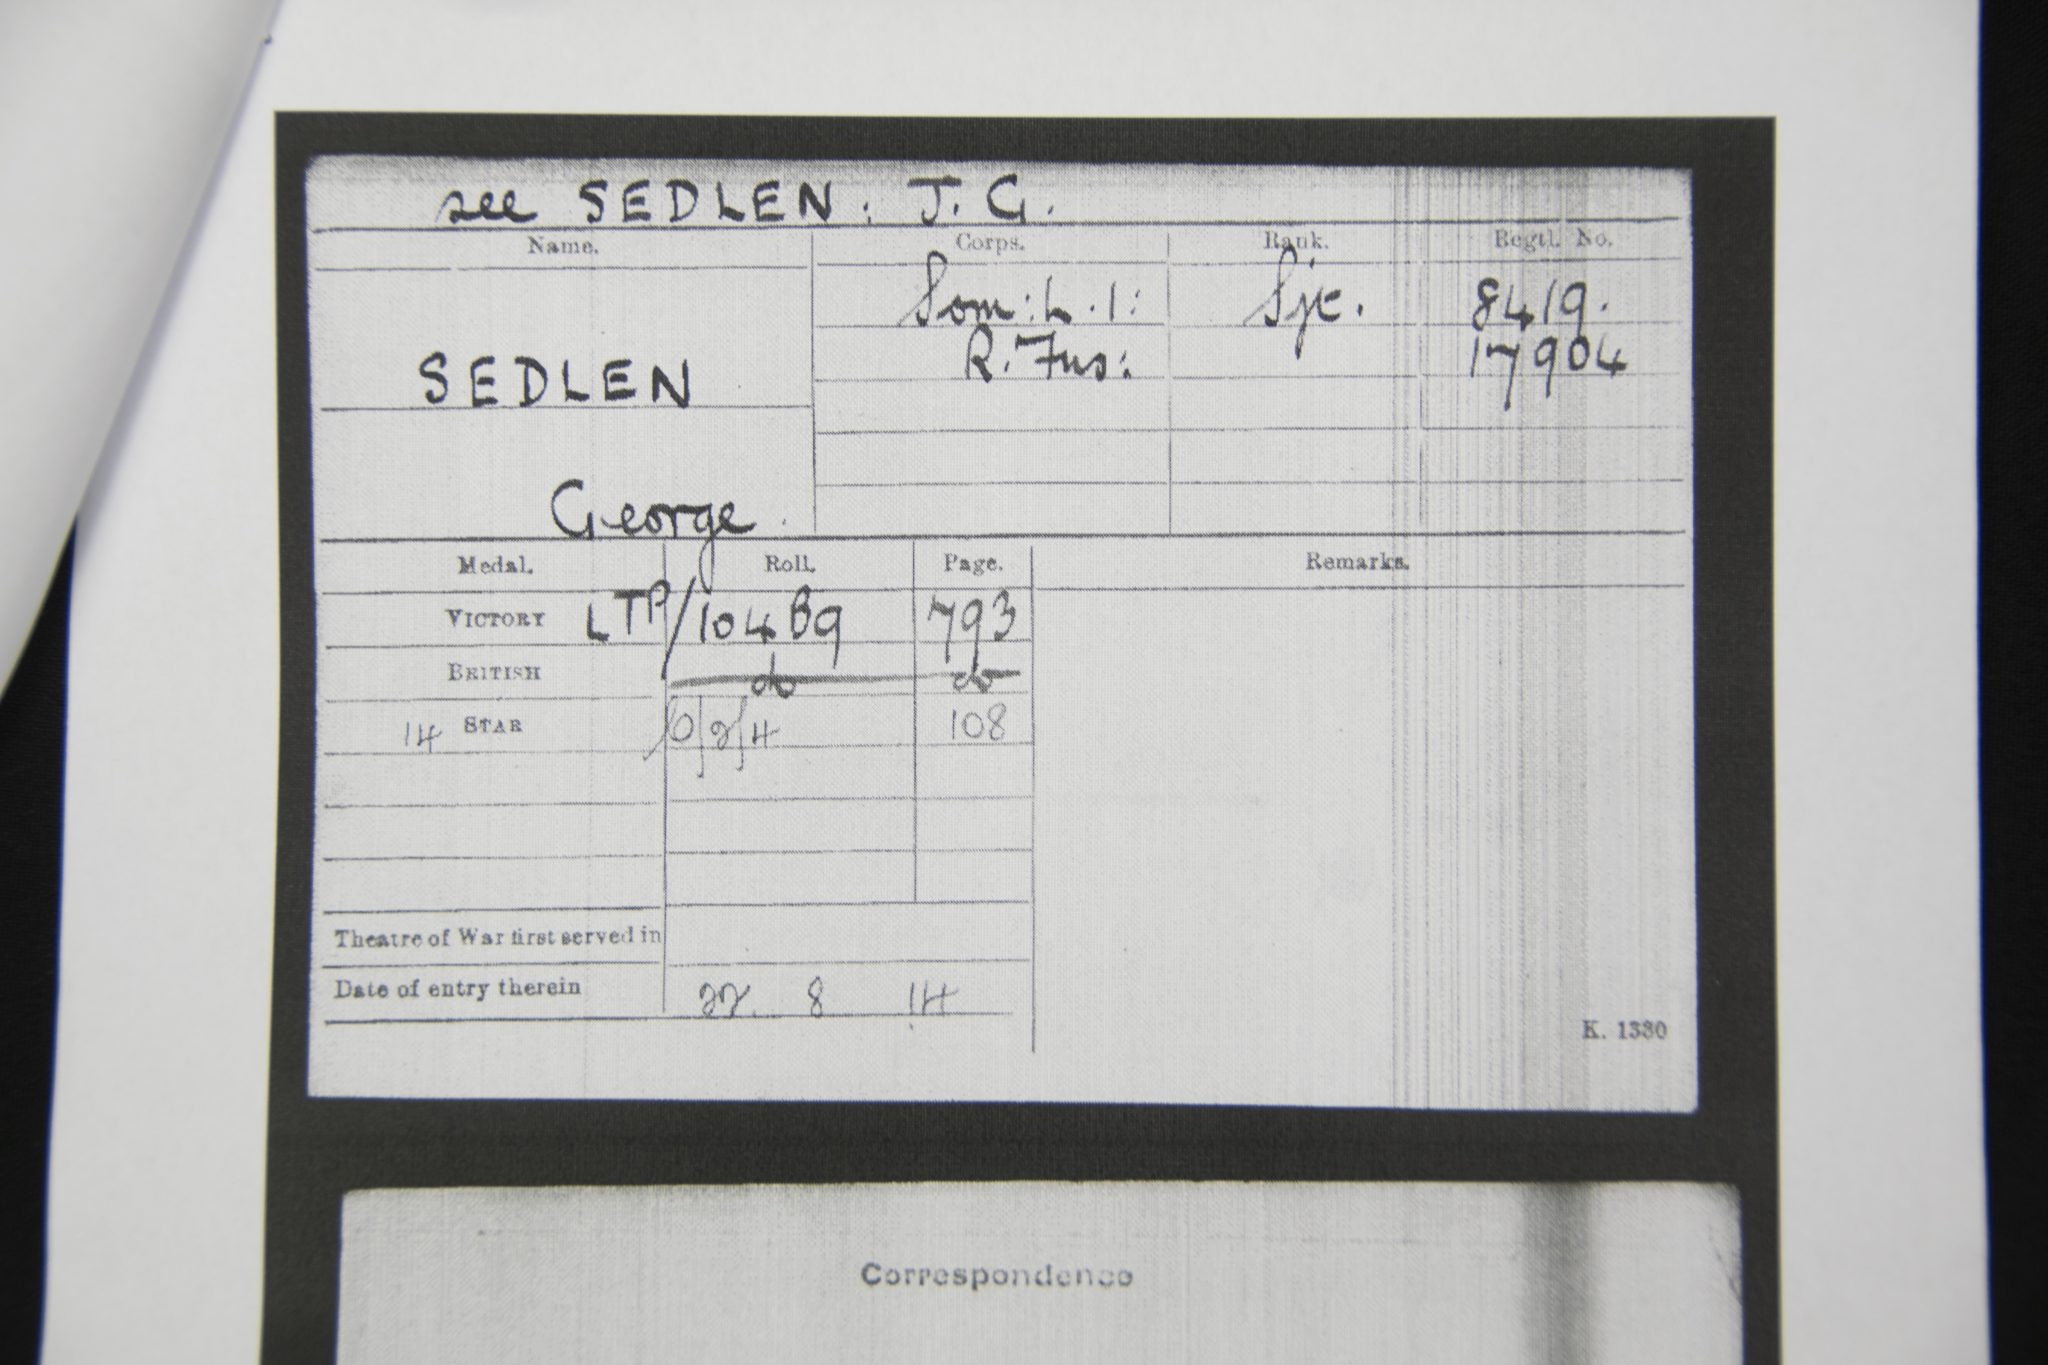 see SEDLEN. J. G.
Name. Corps. Rank. Regtl. No.
Som: L. I: Sjt. 8419.
R. Fus: 17904
SEDLEN
George
Medal. Roll. Page. Remarks.
VICTORY LTP/104B9 793
BRITISH do do
14 STAR 0/2/4 108
Theatre of War first served in
Date of entry therein 22 8 14
K. 1380
Correspondence